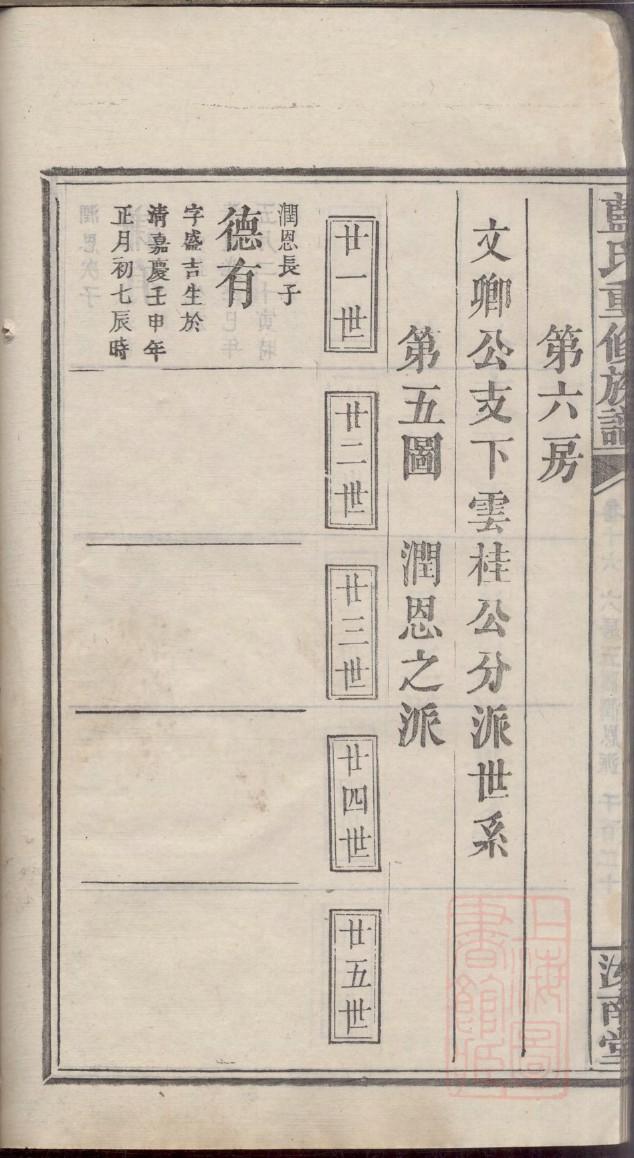 藍氏重修族譜
汝南堂
第六房
文卿公支下雲桂公分派世系
第五圖　潤恩之派
廿一世
廿二世
廿三世
廿四世
廿五世
潤恩長子
德有
字盛吉生於
清嘉慶壬申年
正月初七辰時
上海圖書館藏